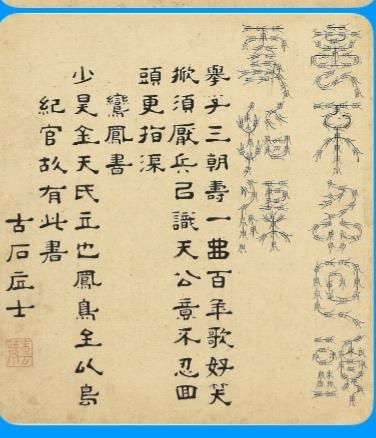 擧手三朝壽一曲百年歌好笑
掀須厭兵已識天公意不忍回
頭更指渠
鸞鳳書
少昊金天氏立也鳳鳥至以鳥
紀官故有此書
古石士